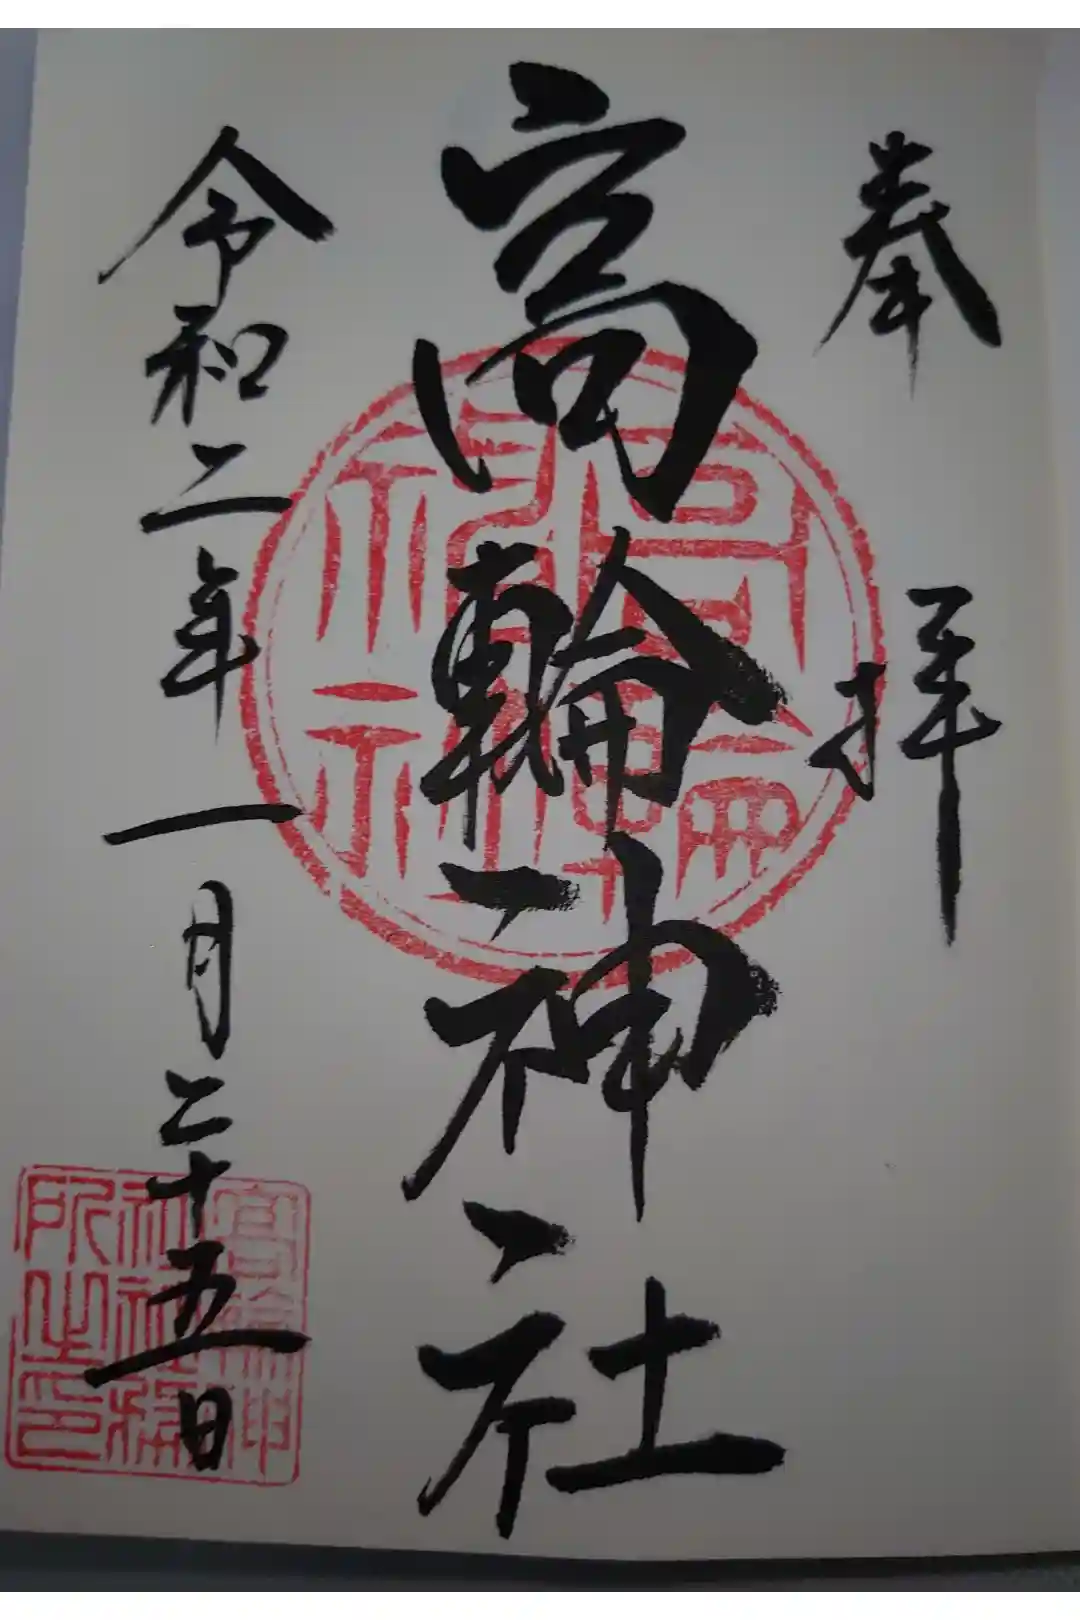 奉拝
高輪神社
令和二年一月二十五日
高輪神
社社務
所之印